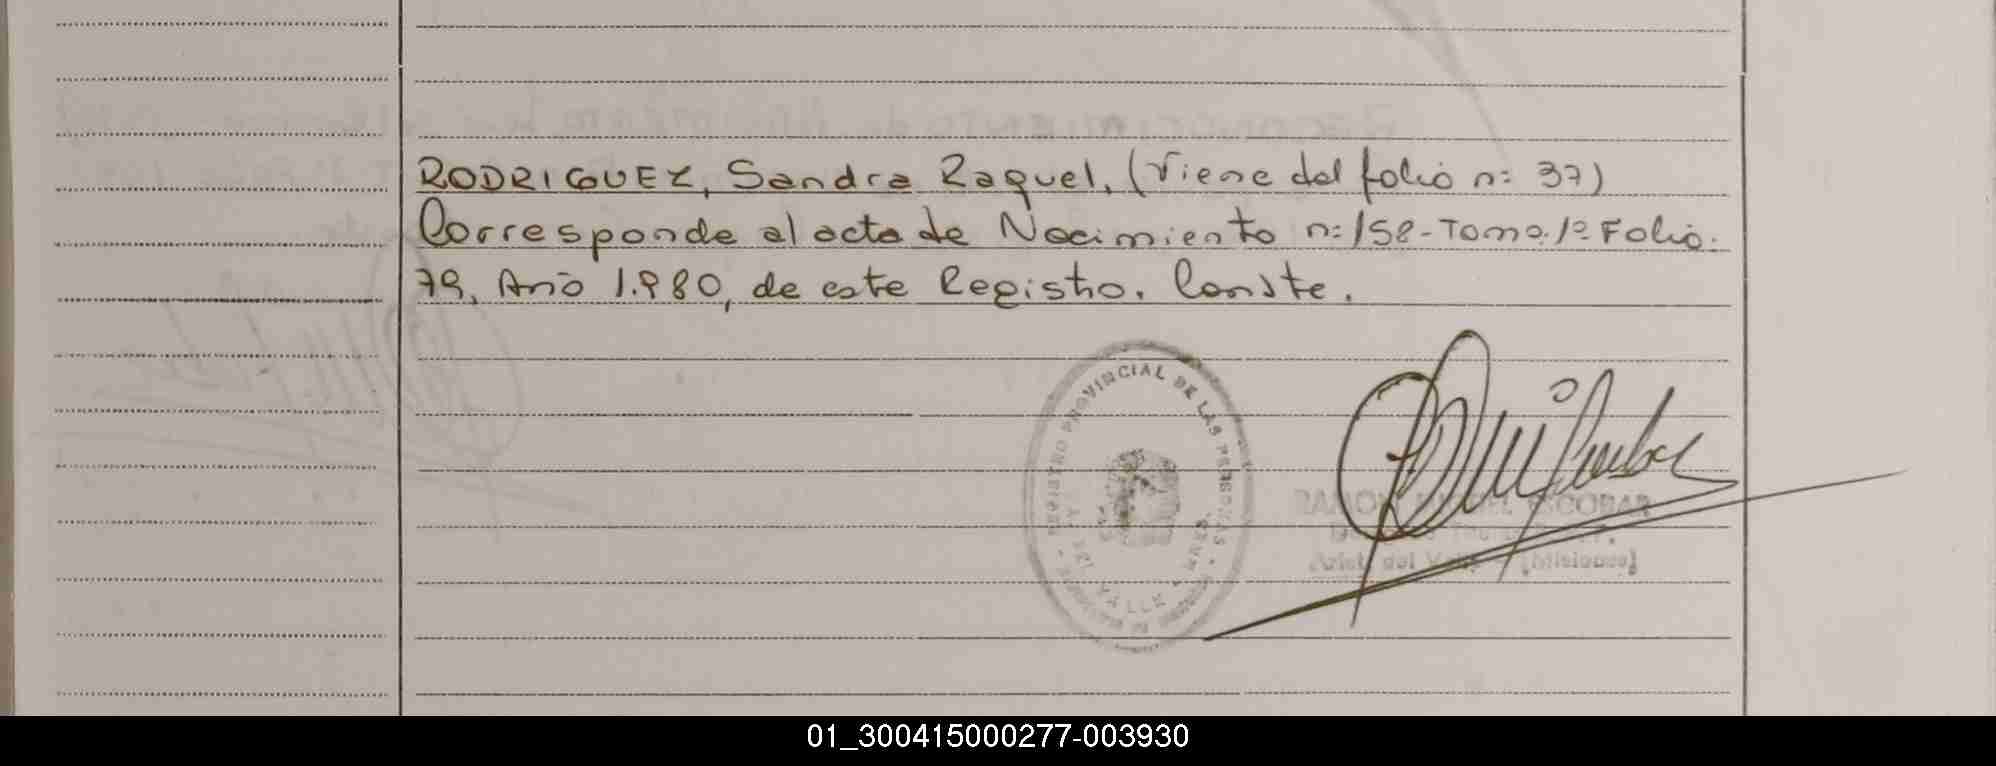 RODRIGUEZ, Sandra Raquel, (Viene del folio n: 37)
Corresponde al acta de Nacimiento n: 158 - Tomo. 1º Folio.
79, Año 1.980, de este Registro. Conste.
REGISTRO PROVINCIAL DE LAS PERSONAS
DEL VALLE
RAMON MIGUEL ESCOBAR
del Valle - (Misiones)
01_300415000277-003930